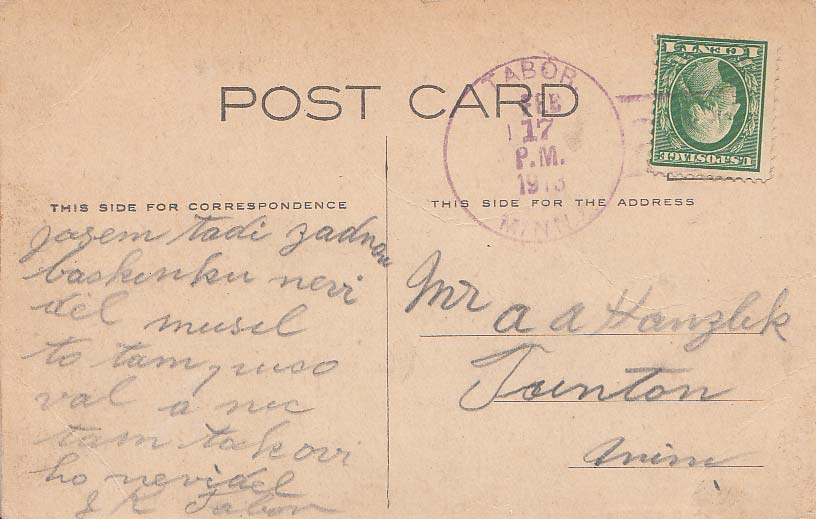 POST CARD
TABOR
FEB
17
P.M.
1913
MINN.
1 CENT 1
U.S. POSTAGE
THIS SIDE FOR CORRESPONDENCE
THIS SIDE FOR THE ADDRESS
jasem tadi zadnou
baskenku nevi
del musel
to tam
val a nic
tam takovi
ho nevidel
J K Tabor
Mr A A Hanzlik
Tunton
Minn